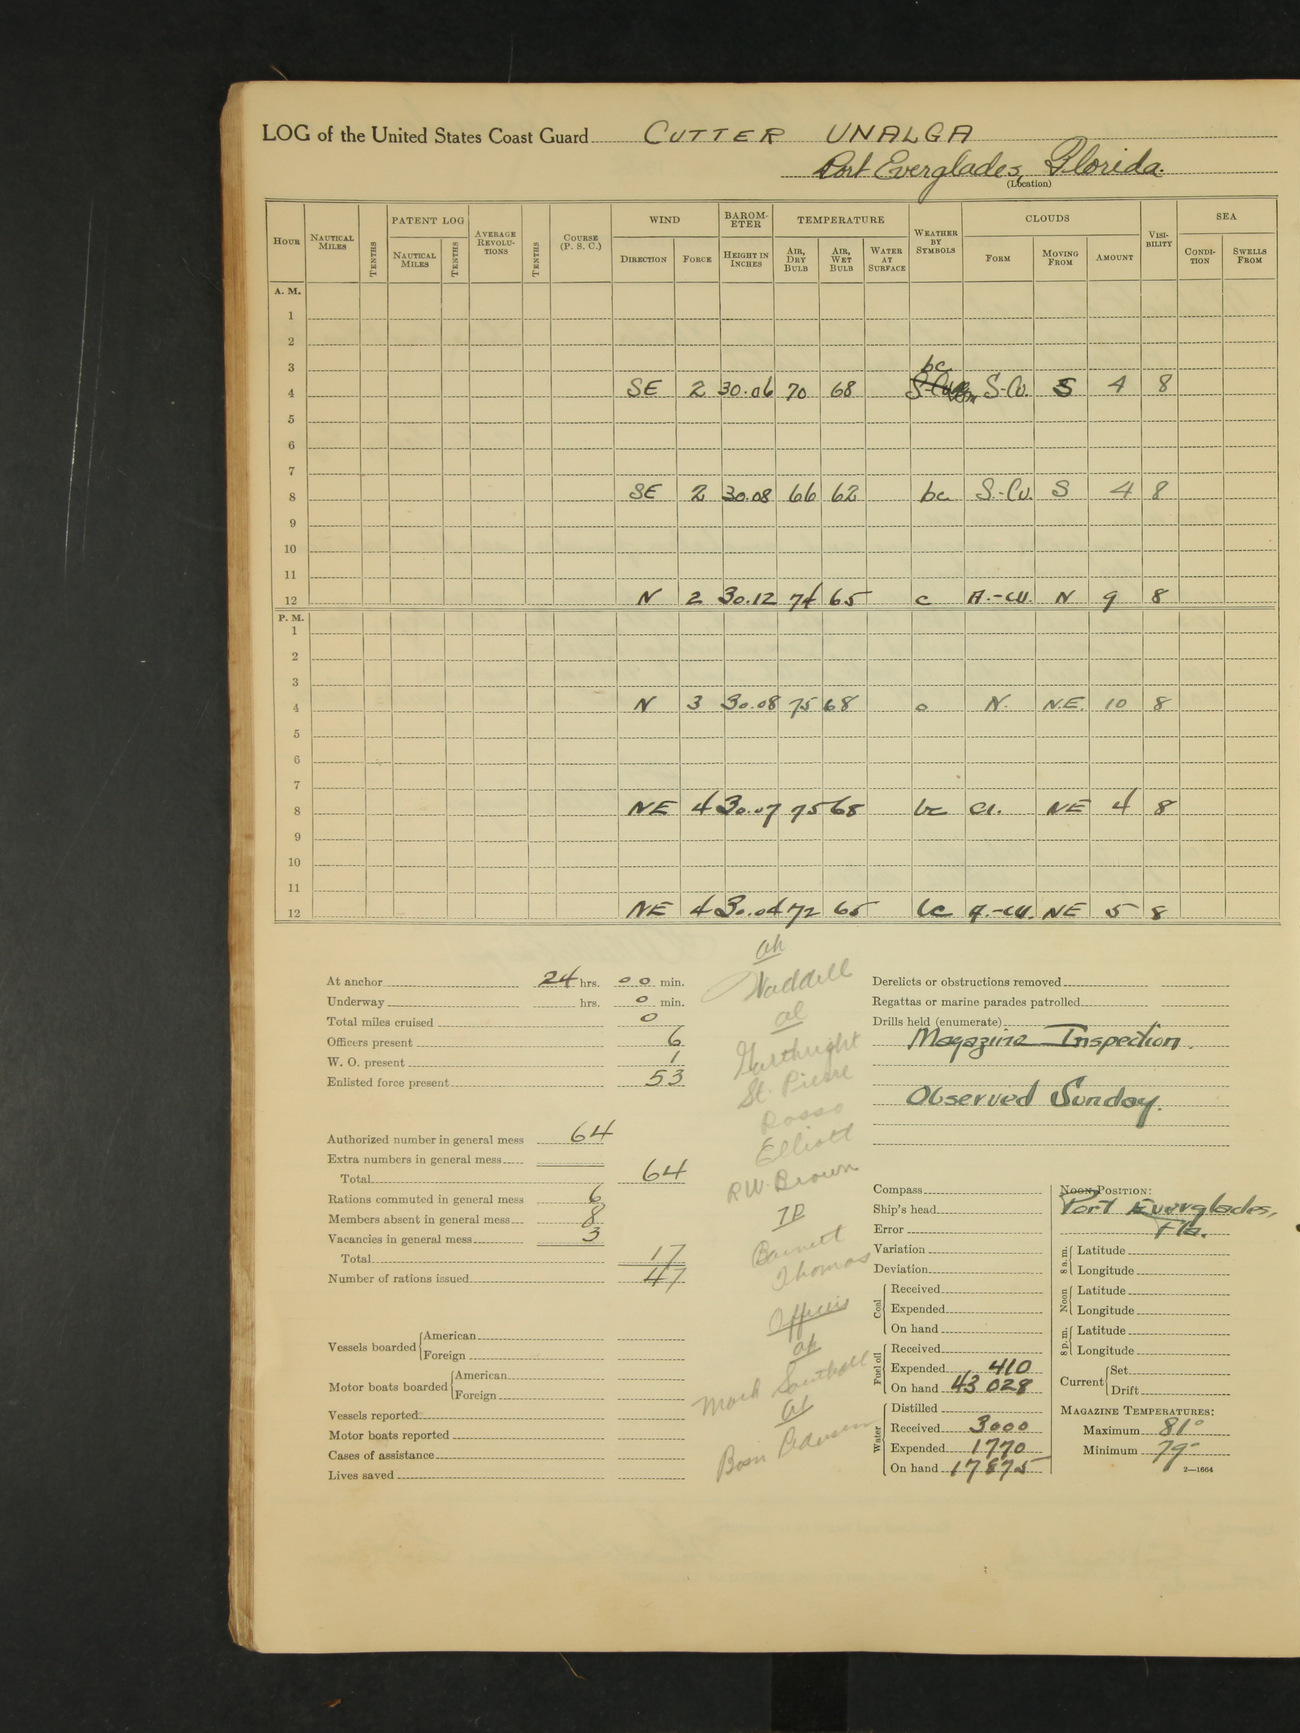 LOG of the United States Coast Guard CUTTER UNALGA
Port Everglades, Florida.
(Location)
HOUR NAUTICAL MILES TENTHS PATENT LOG NAUTICAL MILES TENTHS AVERAGE REVOLUTIONS TENTHS COURSE (P. S. C.) WIND DIRECTION FORCE BAROMETER HEIGHT IN INCHES TEMPERATURE AIR, DRY BULB AIR, WET BULB WATER AT SURFACE WEATHER BY SYMBOLS CLOUDS FORM MOVING FROM AMOUNT VISIBILITY SEA CONDITION SWELLS FROM
A. M.
1
2
3
4 SE 2 30.06 70 68 bc S-Cu. S 4 8
5
6
7
8 SE 2 30.08 66 62 bc S.-Cu. S 4 8
9
10
11
12 N 2 30.12 74 65 c A.-cu. N 9 8
P. M.
1
2
3
4 N 3 30.08 75 68 o N. N.E. 10 8
5
6
7
8 NE 4 30.07 75 68 bc Ci. NE 4 8
9
10
11
12 NE 4 30.04 72 65 bc A.-cu. NE 5 8
At anchor 24 hrs. 00 min.
Underway hrs. 0 min.
Total miles cruised 0
Officers present 6
W. O. present 1
Enlisted force present 53
Authorized number in general mess 64
Extra numbers in general mess
Total 64
Rations commuted in general mess 6
Members absent in general mess 8
Vacancies in general mess 3
Total 17
Number of rations issued 47
Vessels boarded American
Foreign
Motor boats boarded American
Foreign
Vessels reported
Motor boats reported
Cases of assistance
Lives saved
Waddell
al
Garthright
St. Pierre
Rosso
Elliott
RW. Brown
Barnett
Thomas
Officers
Derelicts or obstructions removed
Regattas or marine parades patrolled
Drills held (enumerate)
Magazine Inspection.
Observed Sunday.
Compass
Ship's head
Error
Variation
Deviation
Coal Received
Expended
On hand
Fuel oil Received
Expended 410
On hand 43 028
Water Distilled
Received 3000
Expended 1770
On hand 17875
NOON POSITION:
Port Everglades,
Fla.
8 a.m. Latitude
Longitude
Noon Latitude
Longitude
8 p.m. Latitude
Longitude
Current Set
Drift
MAGAZINE TEMPERATURES:
Maximum 81°
Minimum 79°
2—1664